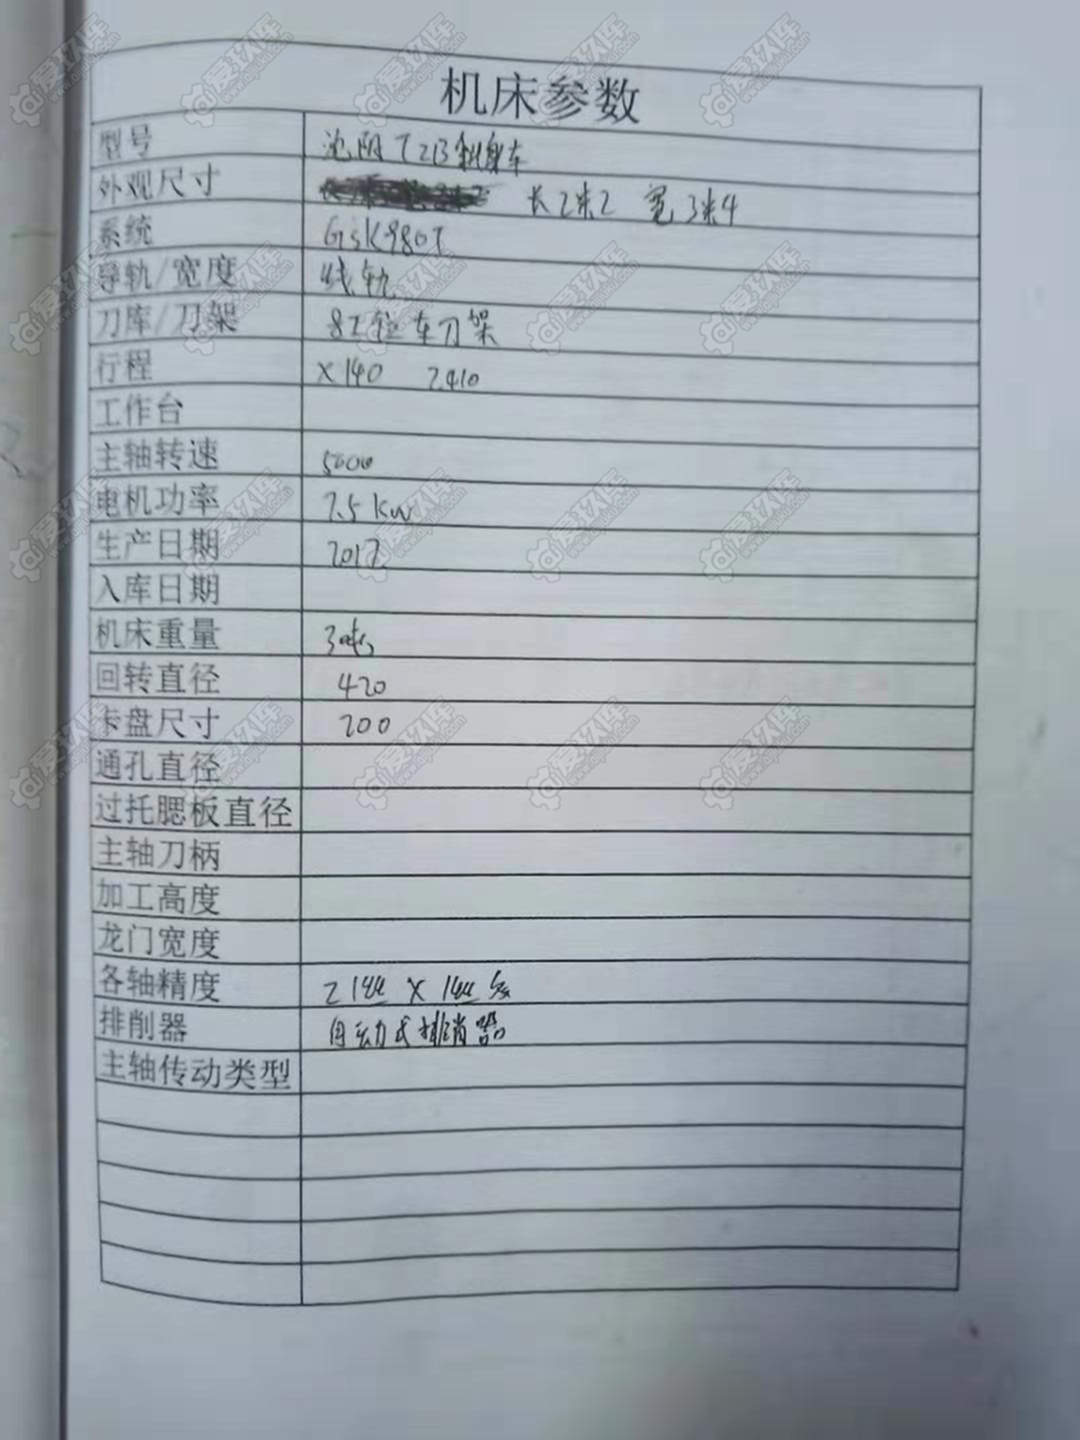 机床参数
型号 沈阳T2B斜身车
外观尺寸 长2米2 宽3米4
系统 GSK980T
导轨/宽度 线轨
刀库/刀架 8工位车刀架
行程 X140 Z410
工作台
主轴转速 5000
电机功率 7.5KW
生产日期 2017
入库日期
机床重量 3吨
回转直径 420
卡盘尺寸 200
通孔直径
过托腮板直径
主轴刀柄
加工高度
龙门宽度
各轴精度 Z1丝 X1丝
排削器 自动式排消器
主轴传动类型
爱玖库